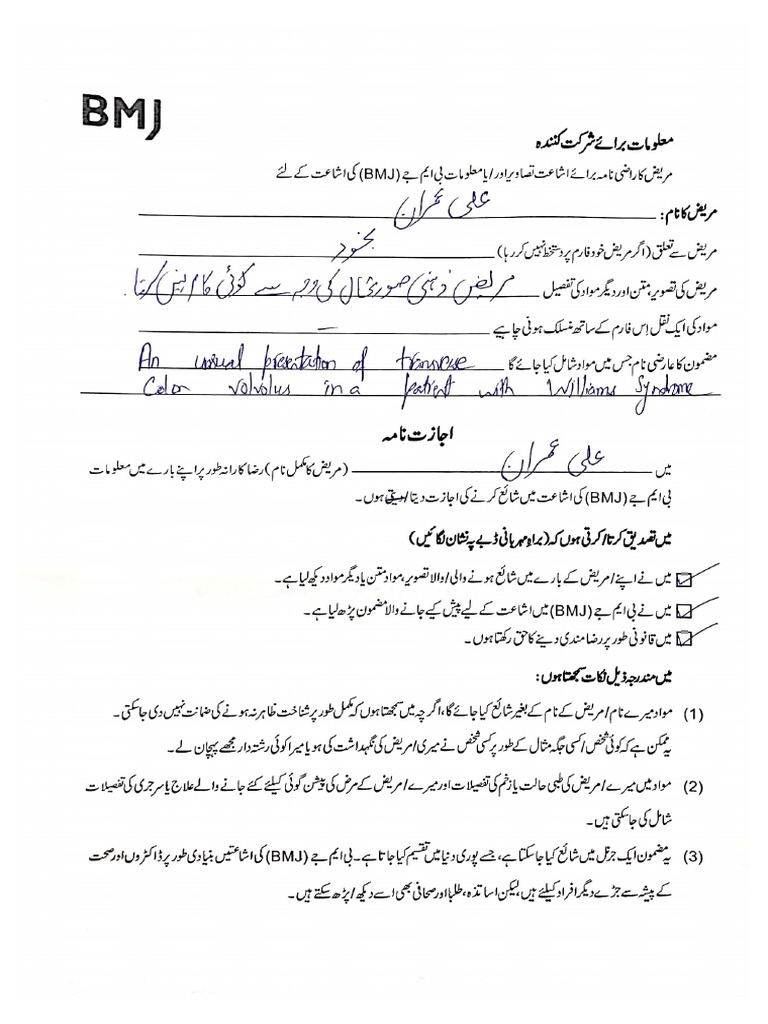 BMJ
معلومات برائے شرکت کنندہ
مریض کا راضی نامہ برائے اشاعت تصاویر اور/یا معلومات بی ایم جے (BMJ) کی اشاعت کے لئے
مریض کا نام: علی عمران
مریض سے تعلق (اگر مریض خود فارم پر دستخط نہیں کر رہا)
مریض کی تصویر، متن اور دیگر مواد کی تفصیل مریض ذہنی صورتحال کی وجہ سے کوئی کام نہیں کرتا.
مواد کی ایک نقل اِس فارم کے ساتھ منسلک ہونی چاہیے –
مضمون کا عارضی نام جس میں مواد شامل کیا جائے گا An unusual presentation of transverse
Colon volvolus in a patient with Williams Syndrome
اجازت نامہ
میں علی عمران (مریض کا مکمل نام) رضاکارانہ طور پر اپنے بارے میں معلومات
بی ایم جے (BMJ) کی اشاعت میں شائع کرنے کی اجازت دیتا/دیتی ہوں۔
میں تصدیق کرتا/کرتی ہوں کہ (براہِ مہربانی ڈبے پہ نشان لگائیں)
میں نے اپنے/مریض کے بارے میں شائع ہونے والی/والا تصویر، مواد متن یا دیگر مواد دیکھ لیا ہے۔
میں نے بی ایم جے (BMJ) میں اشاعت کے لیے پیش کیے جانے والا مضمون پڑھ لیا ہے۔
میں قانونی طور پر رضا مندی دینے کا حق رکھتا ہوں۔
میں مندرجہ ذیل نکات سمجھتا ہوں:
(1) مواد میرے نام/مریض کے نام کے بغیر شائع کیا جائے گا، اگرچہ میں سمجھتا ہوں کہ مکمل طور پر شناخت ظاہر نہ ہونے کی ضمانت نہیں دی جاسکتی۔
یہ ممکن ہے کہ کوئی شخص/کسی جگہ مثال کے طور پر کسی شخص نے میری/مریض کی نگہداشت کی ہو یا میرا کوئی رشتہ دار مجھے پہچان لے۔
(2) مواد میں میرے/مریض کی طبی حالت یا زخم کی تفصیلات اور میرے/مریض کے مرض کی پیشن گوئی کیلئے کئے جانے والے علاج یا سرجری کی تفصیلات
شامل کی جاسکتی ہیں۔
(3) یہ مضمون ایک جرنل میں شائع کیا جاسکتا ہے، جسے پوری دنیا میں تقسیم کیا جاتا ہے۔ بی ایم جے (BMJ) کی اشاعتیں بنیادی طور پر ڈاکٹروں اور صحت
کے پیشہ سے جڑے دیگر افراد کیلئے ہیں، لیکن اساتذہ، طلبا اور صحافی بھی اسے دیکھ/پڑھ سکتے ہیں۔